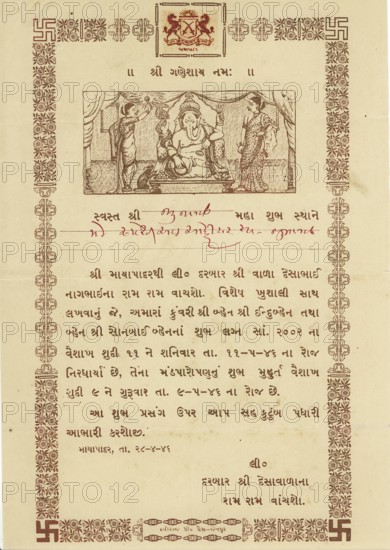 ॥ શ્રી ગણેશાય નમઃ ॥
સ્વસ્ત શ્રી મહા શુભ સ્થાને
શ્રી માયાપાદરથી લી૦ દરબાર શ્રી વાળા દેસાભાઈ
નાગભાઈના રામ રામ વાચશો. વિશેષ ખુશાલી સાથ
લખવાનું જે, અમારાં કુંવરી શ્રી બ્હેન શ્રી ઈન્દુબ્હેન તથા
બ્હેન શ્રી સોનબાઈ બ્હેનનાં શુભ લગ્ન સાં. ૨૦૦૨ ના
વૈશાખ શુદી ૧૧ ને શનિવાર તા. ૧૧-૫-૪૬ ના રોજ
નિરધાર્યાં છે, તેના મંડપારોપણનું શુભ મુહૂર્ત વૈશાખ
સુદી ૯ ને ગુરૂવાર તા. ૯-૫-૪૬ ના રોજ છે.
આ શુભ પ્રસંગ ઉપર આપ સહ કુટુંબ પધારી
આભારી કરશોજી.
માયાપાદર, તા. ૨૮-૪-૪૬
લી૦
દરબાર શ્રી દેસાવાળાના
રામ રામ વાંચશો.